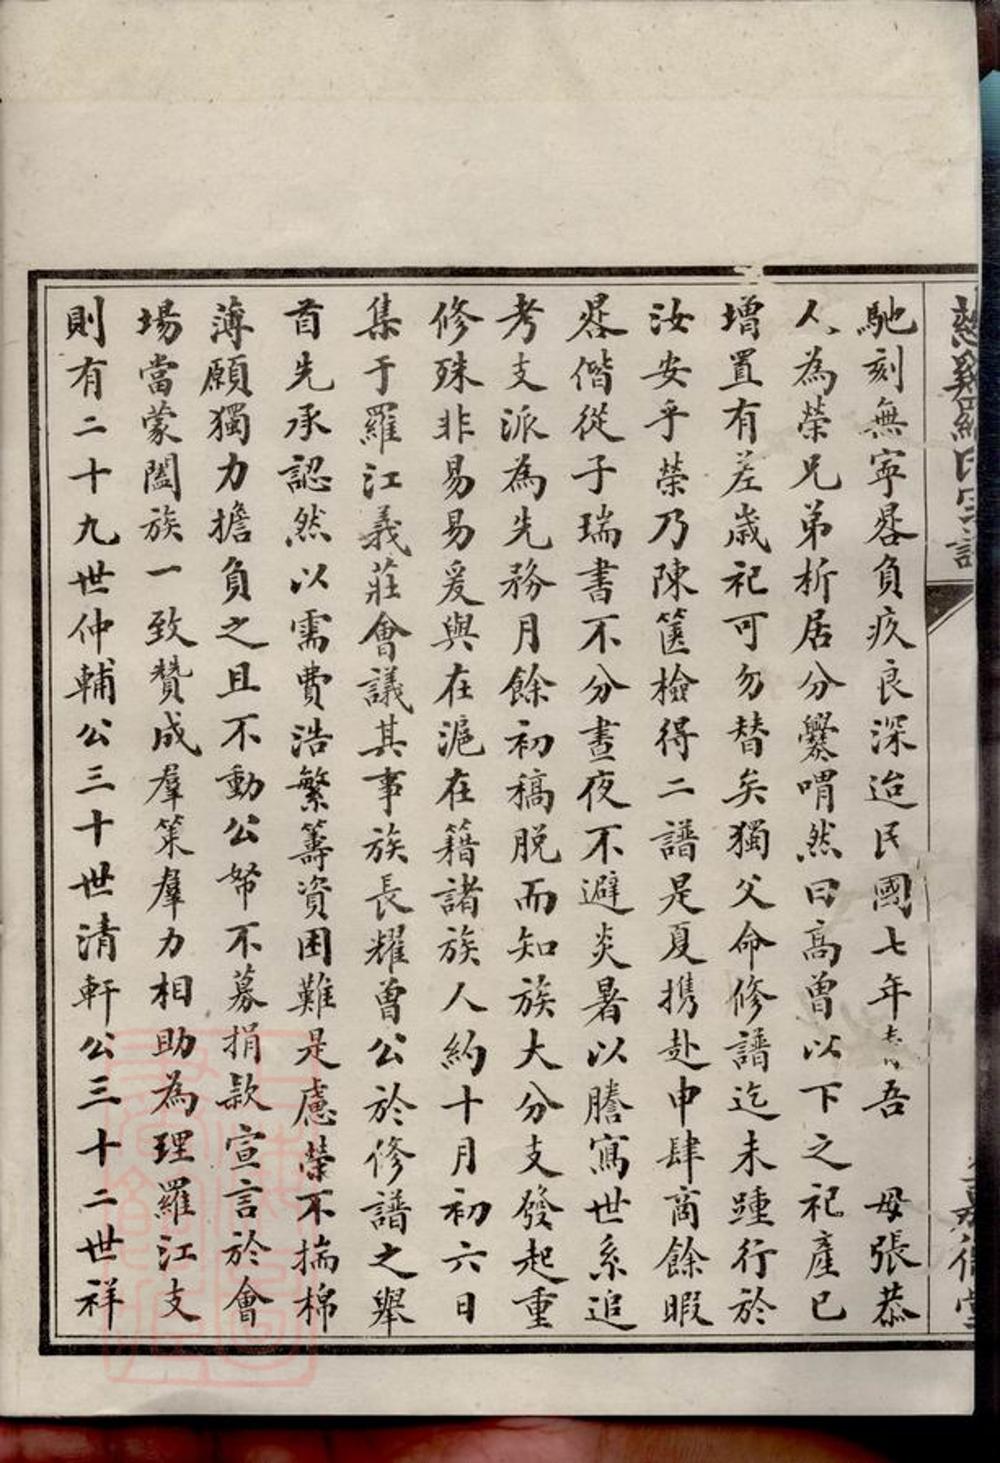 慈谿羅氏宗譜
馳刻無寧晷負疚良深迨民國七年春吾　母張恭
人為榮兄弟析居分爨喟然曰高曾以下之祀產已
增置有差歲祀可勿替矣獨父命修譜迄未踵行於
汝安乎榮乃陳篋檢得二譜是夏携赴申肆商餘暇
晷偕從子瑞書不分晝夜不避炎暑以謄寫世系追
考支派為先務月餘初稿脱而知族大分支發起重
修殊非易易爰與在滬在籍諸族人約十月初六日
集于羅江義莊會議其事族長耀曾公於修譜之舉
首先承認然以需費浩繁籌資困難是慮榮不揣棉
薄願獨力擔負之且不動公帑不募捐款宣言於會
場當蒙闔族一致贊成羣策羣力相助為理羅江支
則有二十九世仲輔公三十世清軒公三十二世祥